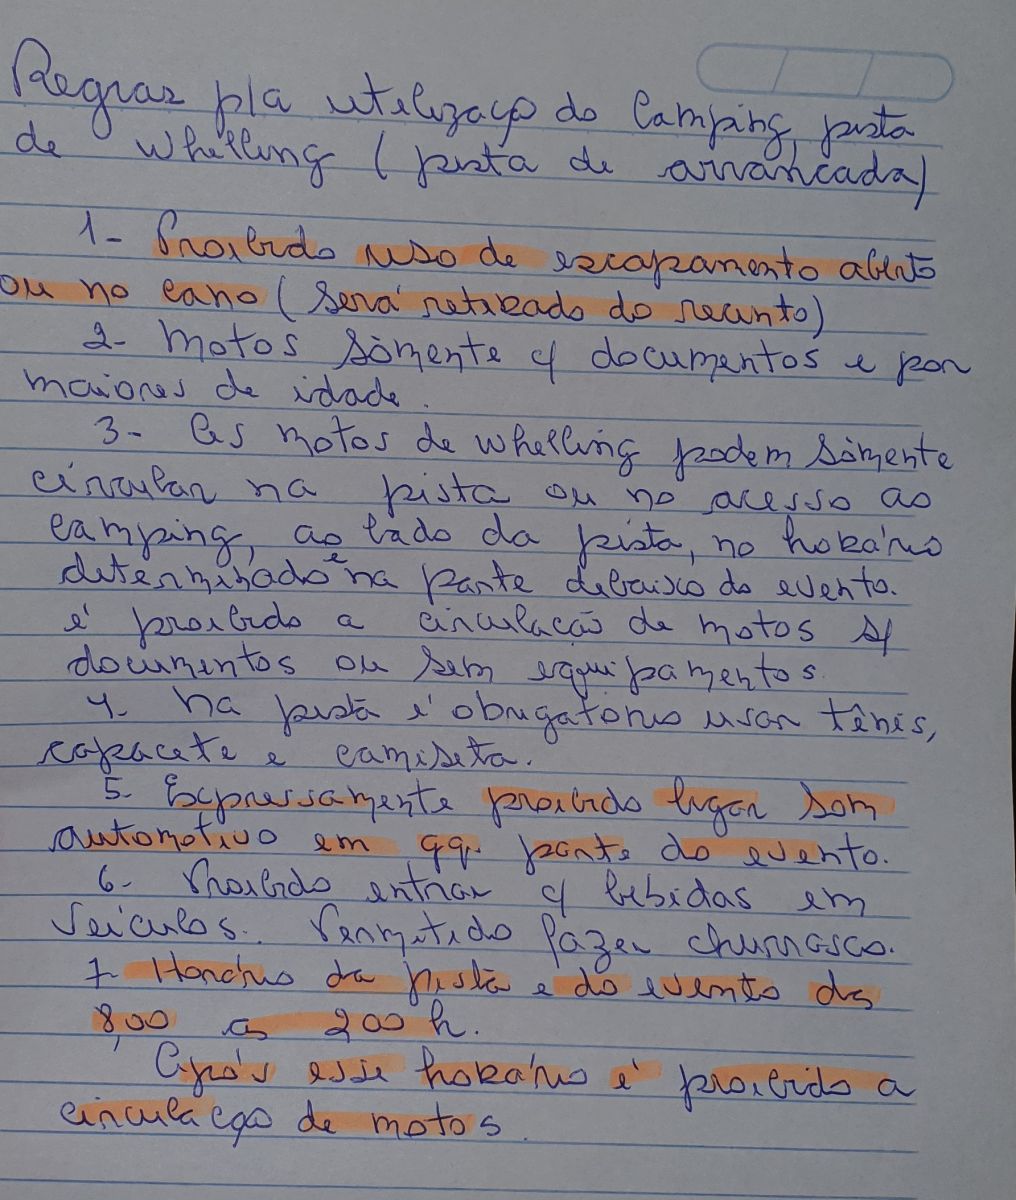 Regras p/a utilização do Camping, pista
de Whelling (pista de arrancada)
1- Proibido uso de escapamento aberto
ou no cano (será retirado do recinto)
2- Motos sòmente c/ documentos e por
maiores de idade.
3- As motos de whelling podem sòmente
circular na pista ou no acesso ao
camping, ao lado da pista, no horário
determinado e na parte debaixo do evento.
é proibido a circulação de motos s/
documentos ou sem equipamentos.
4- Na pista é obrigatório usar tênis,
capacete e camiseta.
5- Expressamente proibido ligar som
automotivo em qq. parte do evento.
6- Proibido entrar c/ bebidas em
veículos. Permitido fazer churrasco.
7- Horário da pista e do evento das
8,00 as 200 h.
Após esse horário é proibido a
circulação de motos.